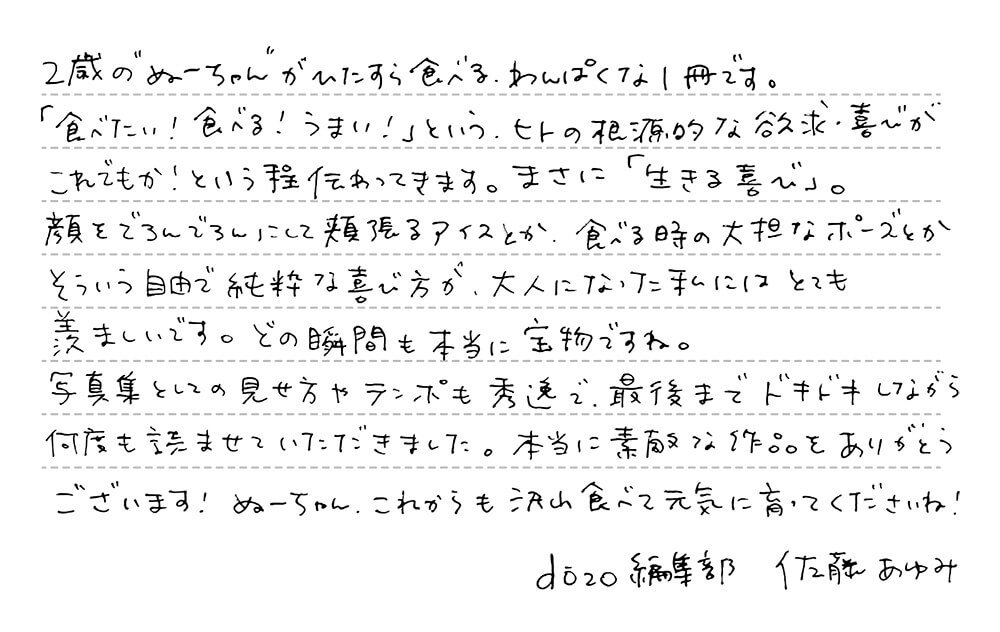 2歳の"ぬーちゃん"がひたすら食べる、わんぱくな1冊です。
「食べたい！食べる！うまい！」という、ヒトの根源的な欲求・喜びが
これでもか！という程伝わってきます。まさに「生きる喜び」。
顔をでろんでろんにして頬張るアイスとか、食べる時の大胆なポーズとか
そういう自由で純粋な喜び方が、大人になった私にはとても
羨ましいです。どの瞬間も本当に宝物ですね。
写真集としての見せ方やテンポも秀逸で、最後までドキドキしながら
何度も読ませていただきました。本当に素敵な作品をありがとう
ございます！ぬーちゃん、これからも沢山食べて元気に育ってくださいね！
dōzo編集部 佐藤あゆみ